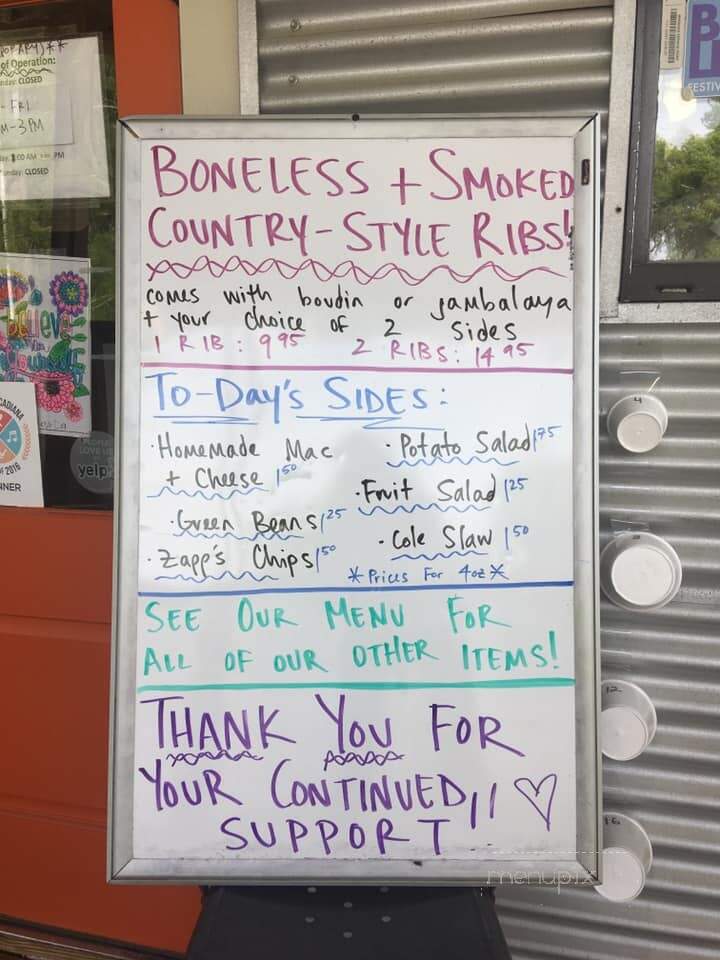 of Operation:
CLOSED
- FRI
M-3 PM
PM
CLOSED
BONELESS + SMOKED
COUNTRY-STYLE RIBS!
comes with boudin or jambalaya
+ your choice of 2 sides
1 RIB: 9 95 2 RIBS: 14 95
TO-DAY'S SIDES:
· Homemade Mac
+ Cheese 1 50
· Green Beans 1 25
· Zapp's Chips 1 50
· Potato Salad 1 75
· Fruit Salad 1 25
· Cole Slaw 1 50
* Prices For 4oz *
SEE OUR MENU FOR
ALL OF OUR OTHER ITEMS!
THANK YOU FOR
YOUR CONTINUED
SUPPORT!!
believe
yourself
ACADIANA
2016
NNER
yelp
FESTIV
4
8
12
16
menupix